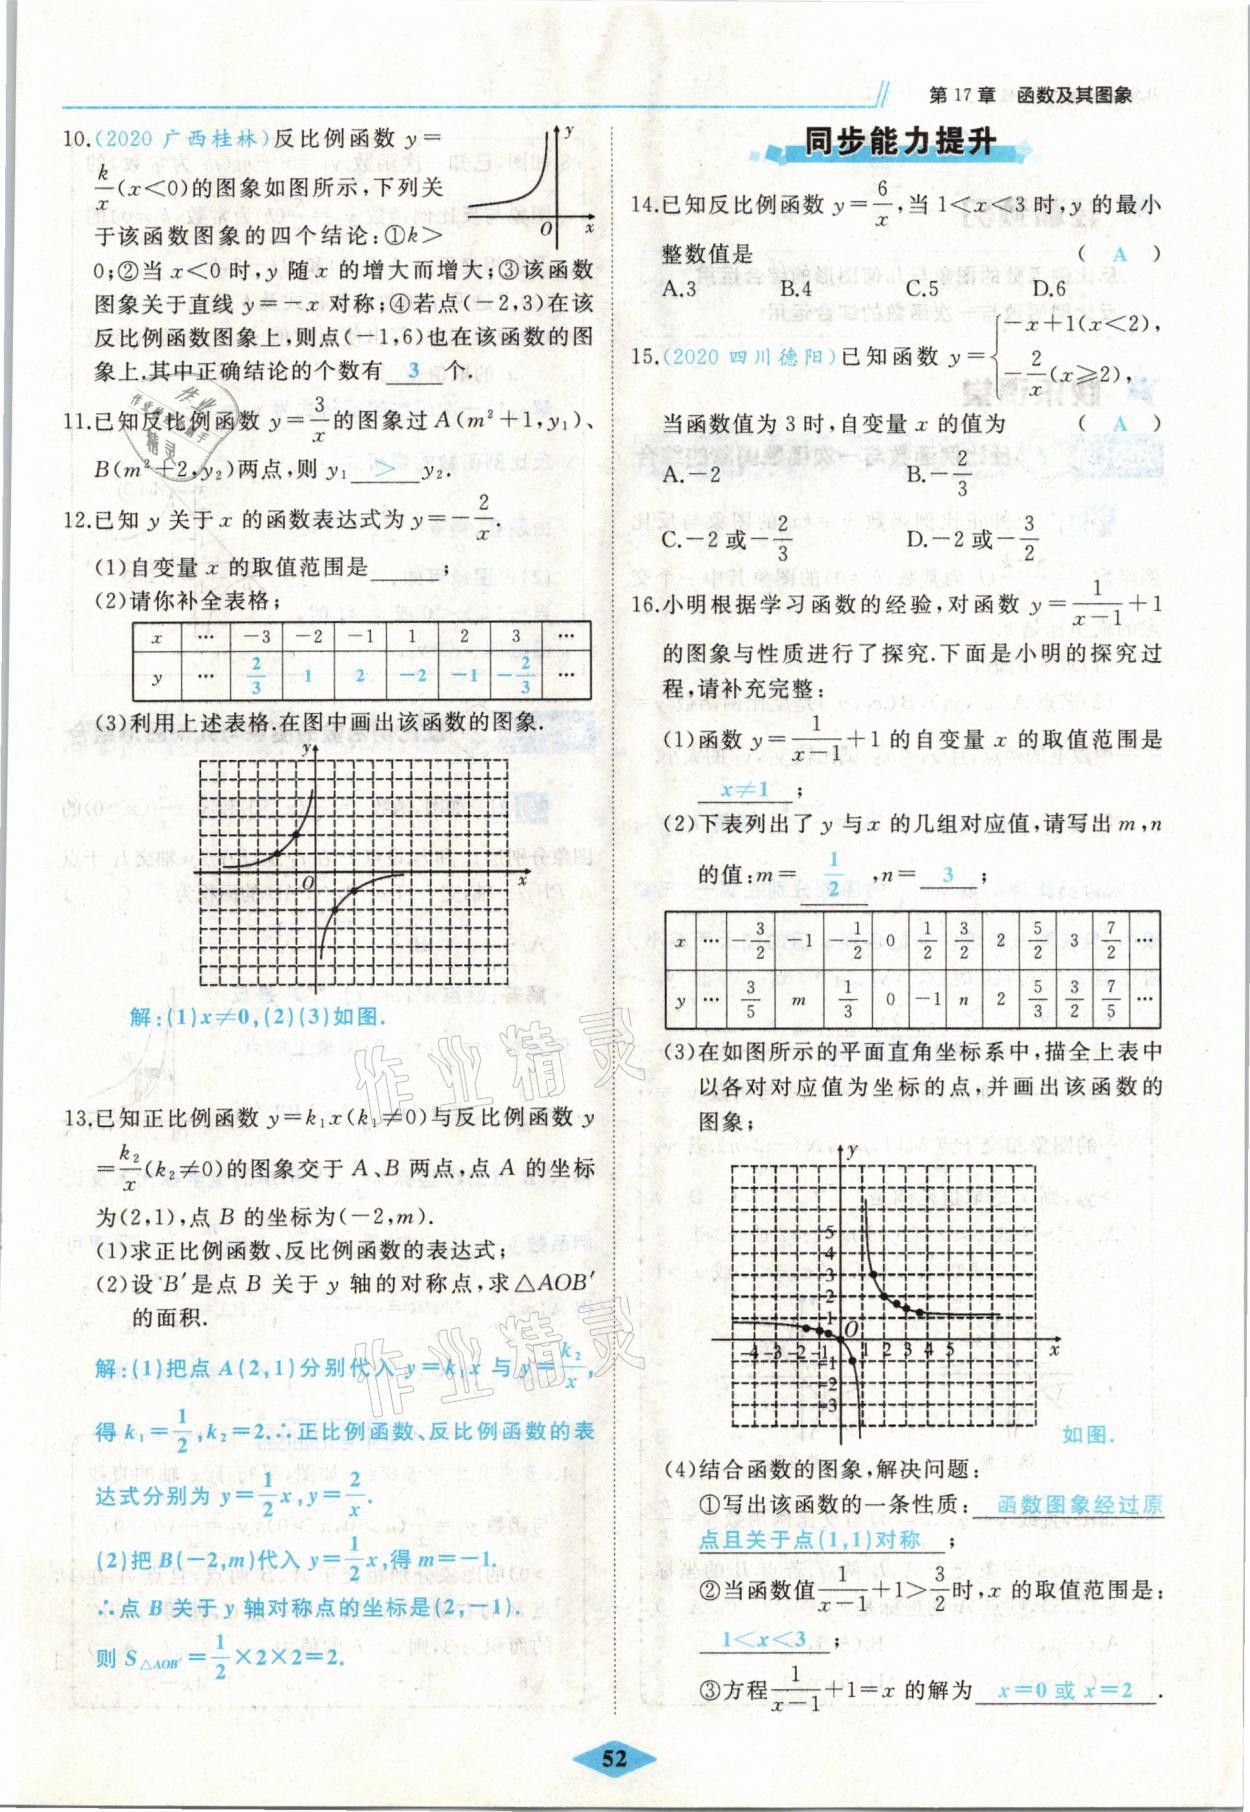 第17章 函数及其图象
10.(2020 广西桂林)反比例函数 y=
k/x(x<0)的图象如图所示,下列关
于该函数图象的四个结论:①k>
0;②当 x<0 时,y 随 x 的增大而增大;③该函数
图象关于直线 y=-x 对称;④若点(-2,3)在该
反比例函数图象上,则点(-1,6)也在该函数的图
象上,其中正确结论的个数有 3 个.
y
O x
11.已知反比例函数 y=3/x的图象过 A(m²+1,y₁)、
B(m²+2,y₂)两点,则 y₁ > y₂.
12.已知 y 关于 x 的函数表达式为 y=-2/x.
(1)自变量 x 的取值范围是 ;
(2)请你补全表格;
x … -3 -2 -1 1 2 3 …
y … 2/3 1 2 -2 -1 -2/3 …
(3)利用上述表格.在图中画出该函数的图象.
y
O x
解:(1)x≠0,(2)(3)如图.
13.已知正比例函数 y=k₁x(k₁≠0)与反比例函数 y
=k₂/x(k₂≠0)的图象交于 A、B 两点,点 A 的坐标
为(2,1),点 B 的坐标为(-2,m).
(1)求正比例函数、反比例函数的表达式;
(2)设 B′是点 B 关于 y 轴的对称点,求△AOB′
的面积.
解:(1)把点 A(2,1)分别代入 y=k₁x 与 y=k₂/x,
得 k₁=1/2,k₂=2.∴正比例函数、反比例函数的表
达式分别为 y=1/2x,y=2/x.
(2)把 B(-2,m)代入 y=1/2x,得 m=-1.
∴点 B 关于 y 轴对称点的坐标是(2,-1).
则 S△AOB′=1/2×2×2=2.
同步能力提升
14.已知反比例函数 y=6/x,当 1<x<3 时,y 的最小
整数值是 ( A )
A.3 B.4 C.5 D.6
15.(2020 四川德阳)已知函数 y={-x+1(x<2),
-2/x(x≥2),
当函数值为 3 时,自变量 x 的值为 ( A )
A.-2 B.-2/3
C.-2 或-2/3 D.-2 或-3/2
16.小明根据学习函数的经验,对函数 y=1/(x-1)+1
的图象与性质进行了探究.下面是小明的探究过
程,请补充完整:
(1)函数 y=1/(x-1)+1 的自变量 x 的取值范围是
x≠1 ;
(2)下表列出了 y 与 x 的几组对应值,请写出 m,n
的值:m= 1/2 ,n= 3 ;
x … -3/2 -1 -1/2 0 1/2 3/2 2 5/2 3 7/2 …
y … 3/5 m 1/3 0 -1 n 2 5/3 3/2 7/5 …
(3)在如图所示的平面直角坐标系中,描全上表中
以各对对应值为坐标的点,并画出该函数的
图象;
y
5
4
3
2
1
O
-4 -3 -2 -1 1 2 3 4 5 x
-1
-2
-3
如图.
(4)结合函数的图象,解决问题:
①写出该函数的一条性质: 函数图象经过原
点且关于点(1,1)对称 ;
②当函数值1/(x-1)+1>3/2时,x 的取值范围是:
1<x<3 ;
③方程1/(x-1)+1=x 的解为 x=0 或 x=2 .
52
作业精灵
作业精灵